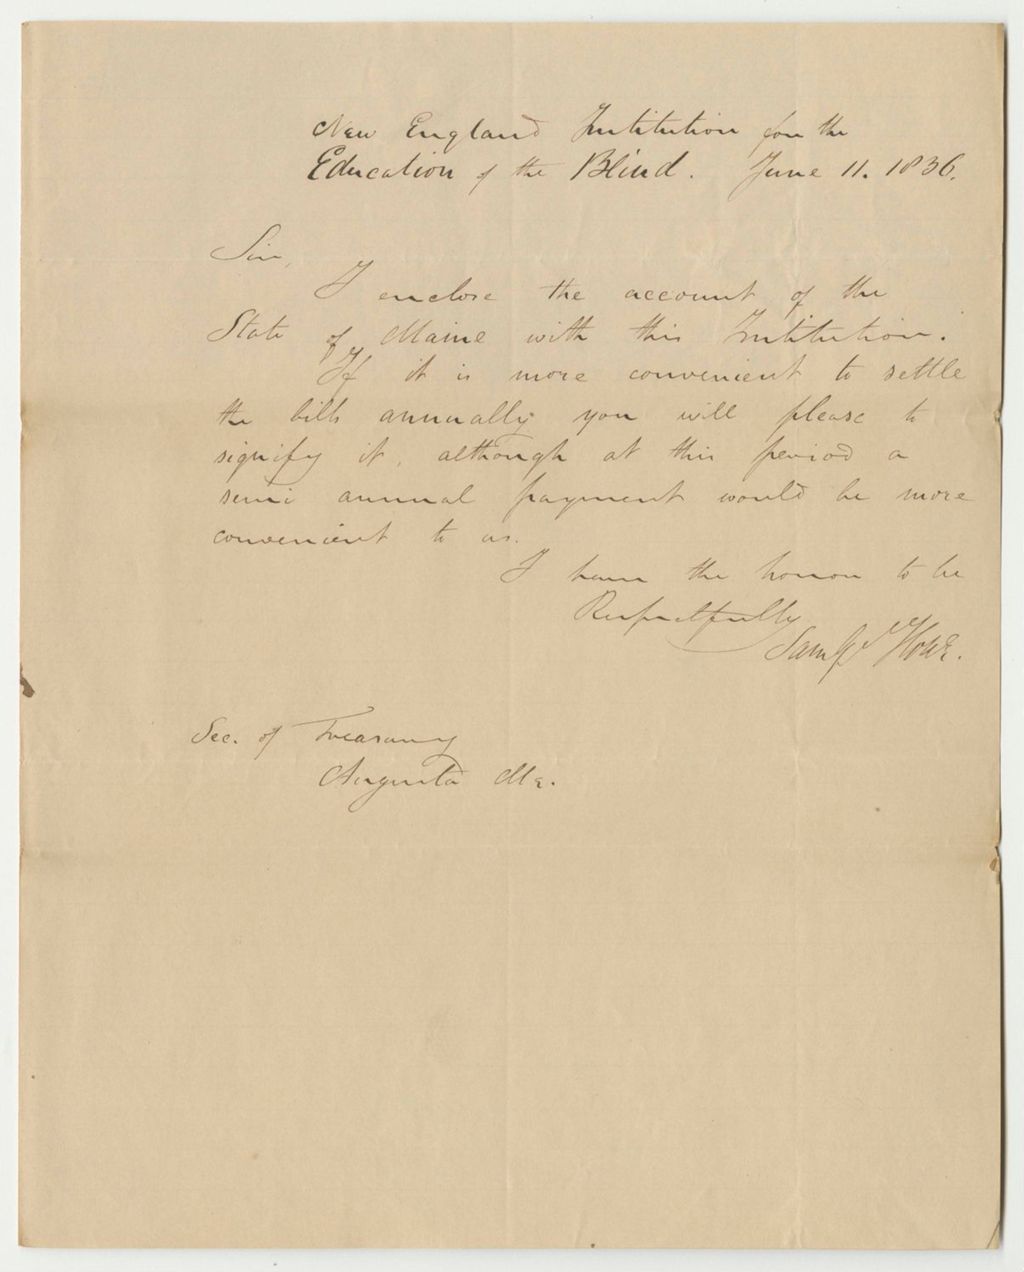 New England Institution for the
Education of the Blind. June 11. 1836.
Sir,
I enclose the account of the
State of Maine with this Institution.
If it is more convenient to settle
the bills annually you will please to
signify it, although at this period a
semi annual payment would be more
convenient to us.
I have the honor to be
Respectfully
Saml G Howe.
Sec. of Treasury
Augusta Me.